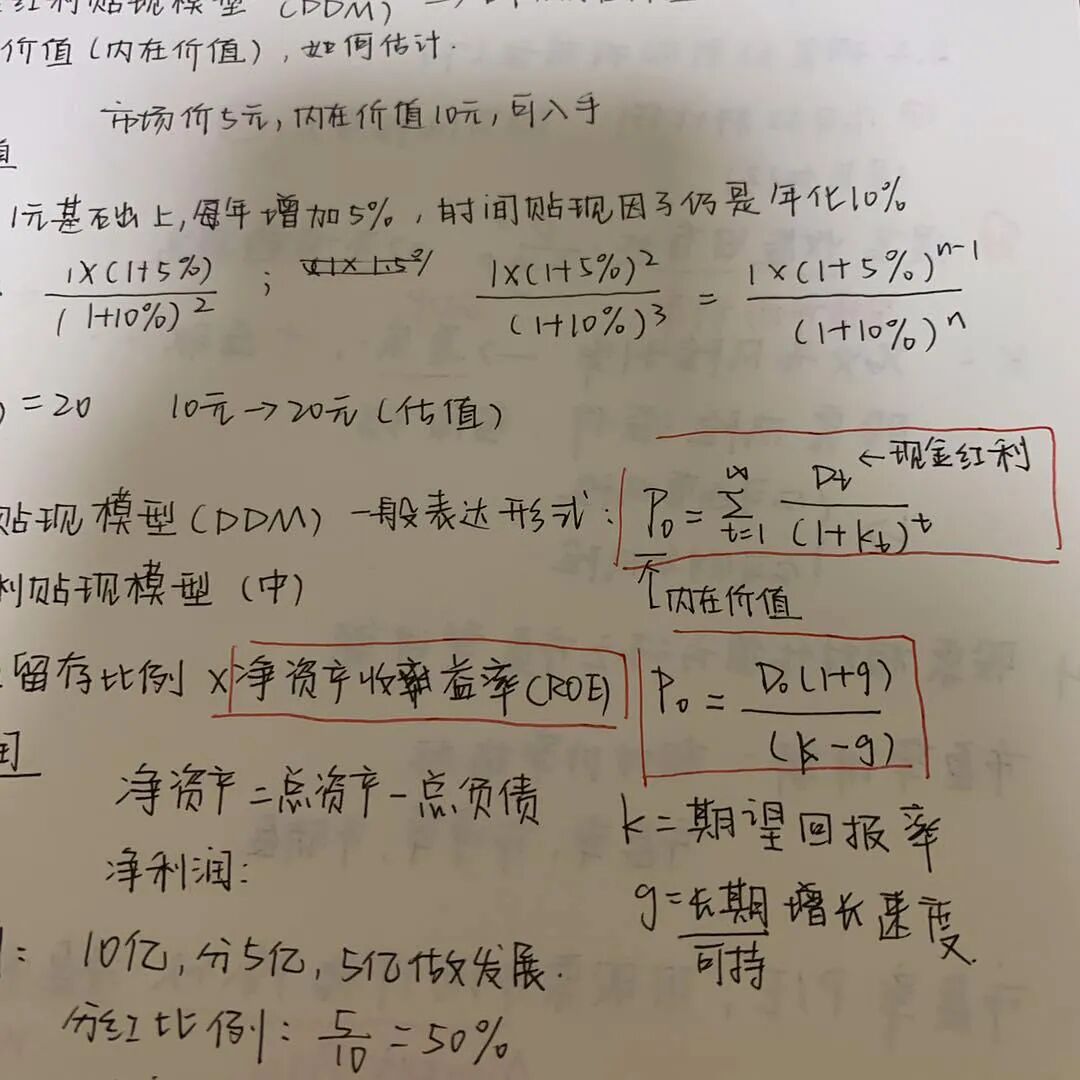 红利贴现模型 (DDM)
价值(内在价值), 如何估计.
市场价5元, 内在价值10元, 可入手
值
1元基础上, 每年增加5%, 时间贴现因子仍是年化10%
1×(1+5%) / (1+10%)² ; 1×(1+5%)² / (1+10%)³ = 1×(1+5%)ⁿ⁻¹ / (1+10%)ⁿ
) = 20 10元→20元(估值)
贴现模型(DDM) 一般表达形式: P₀ = ∑_{t=1}^{∞} Dt / (1+kt)^t ←现金红利
内在价值
利贴现模型(中)
留存比例 × 净资产收益率(ROE)
P₀ = D₀(1+g) / (k-g)
净资产=点资产-点负债
k=期望回报率
净利润:
g=长期增长速度
可持
: 10亿, 分5亿, 5亿做发展.
分红比例: 5/10 = 50%